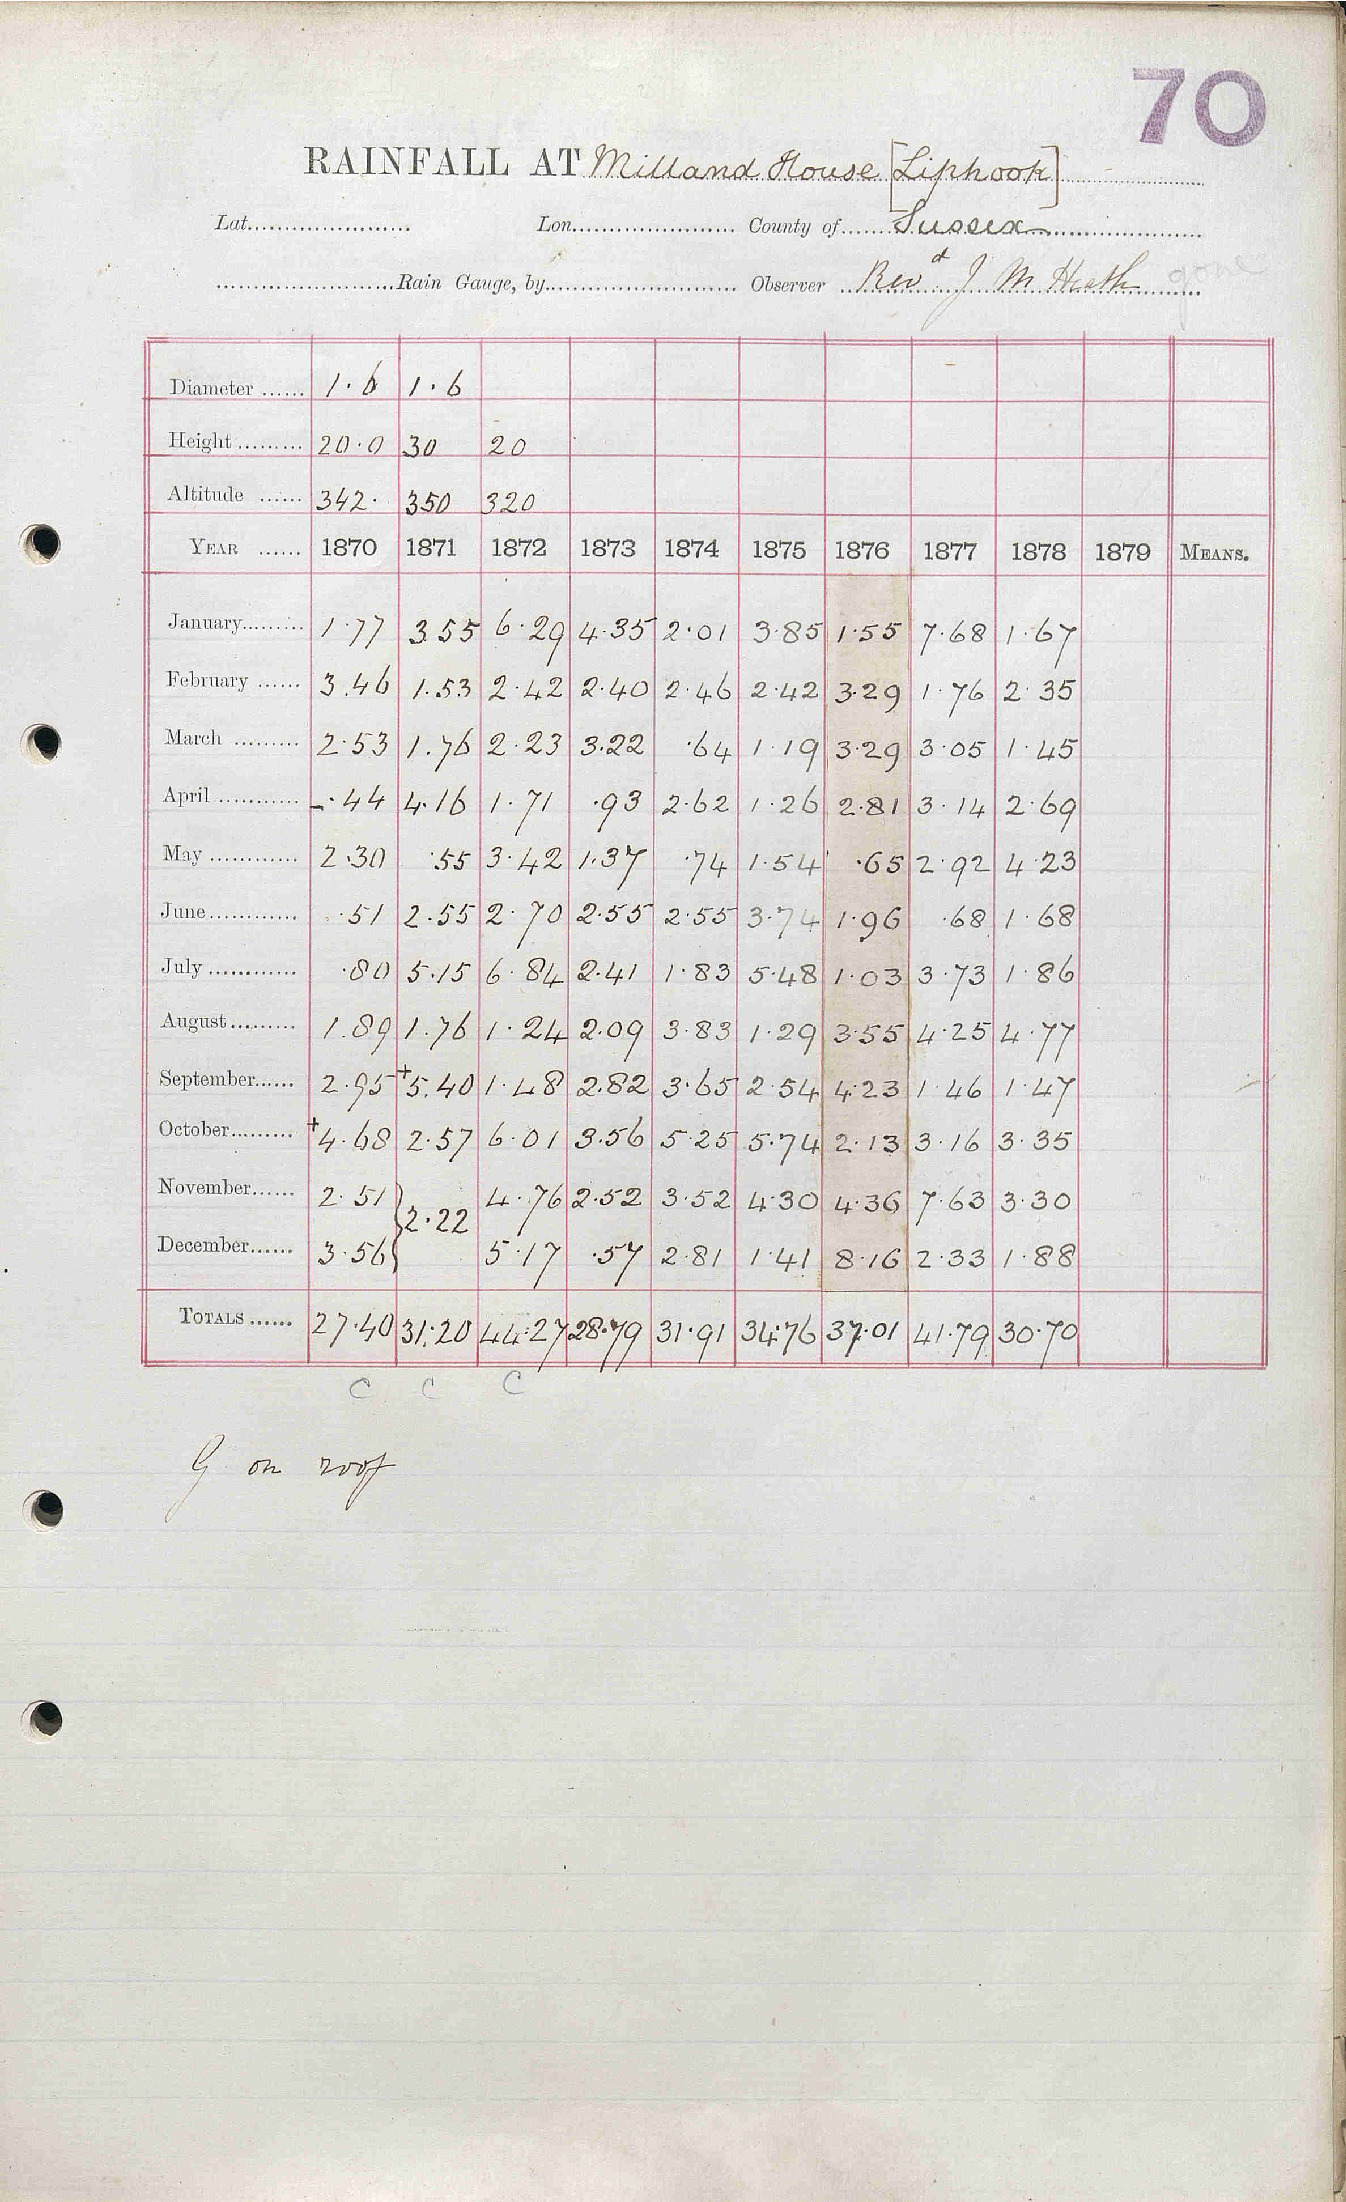 70
RAINFALL AT Milland House [Liphook]
Lat. Lon. County of Sussex
Rain Gauge, by Observer Revd J M Heath gone
Diameter 1.6 1.6
Height 20.0 30 20
Altitude 342. 350 320
YEAR 1870 1871 1872 1873 1874 1875 1876 1877 1878 1879 MEANS.
January 1.77 3.55 6.29 4.35 2.01 3.85 1.55 7.68 1.67
February 3.46 1.53 2.42 2.40 2.46 2.42 3.29 1.76 2.35
March 2.53 1.76 2.23 3.22 .64 1.19 3.29 3.05 1.45
April -.44 4.16 1.71 .93 2.62 1.26 2.81 3.14 2.69
May 2.30 .55 3.42 1.37 .74 1.54 .65 2.92 4.23
June .51 2.55 2.70 2.55 2.55 3.74 1.96 .68 1.68
July .80 5.15 6.84 2.41 1.83 5.48 1.03 3.73 1.86
August 1.89 1.76 1.24 2.09 3.83 1.29 3.55 4.25 4.77
September 2.95 +5.40 1.48 2.82 3.65 2.54 4.23 1.46 1.47
October +4.68 2.57 6.01 3.56 5.25 5.74 2.13 3.16 3.35
November 2.51 } 2.22 4.76 2.52 3.52 4.30 4.36 7.63 3.30
December 3.56 } 5.17 .57 2.81 1.41 8.16 2.33 1.88
TOTALS 27.40 31.20 44.27 28.79 31.91 34.76 37.01 41.79 30.70
C C C
G on roof